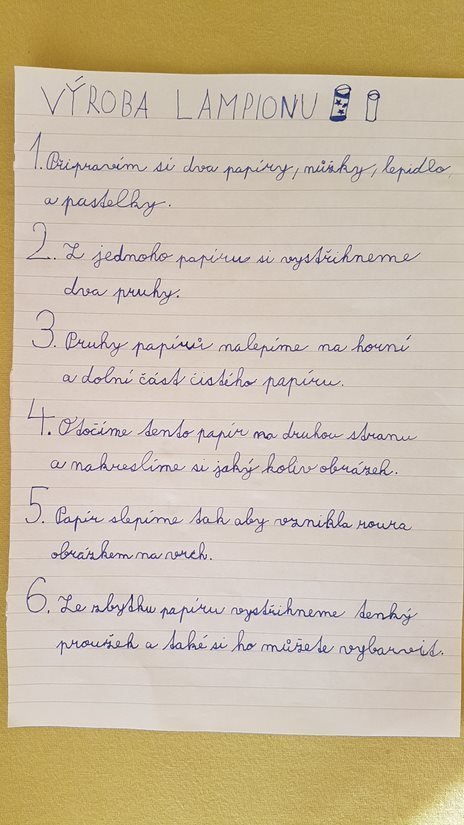 VÝROBA LAMPIONU
1. Připravím si dva papíry, nůžky, lepidlo,
a pastelky.
2. Z jednoho papíru si vystřihneme
dva pruhy.
3. Pruhy papírů nalepíme na horní
a dolní část čistého papíru.
4. Otočíme tento papír na druhou stranu
a nakreslíme si jaký koliv obrázek.
5. Papír slepíme tak aby vznikla roura
obrázkem na vrch.
6. Ze zbytku papíru vystřihneme tenký
proužek a také si ho můžete vybarvit.